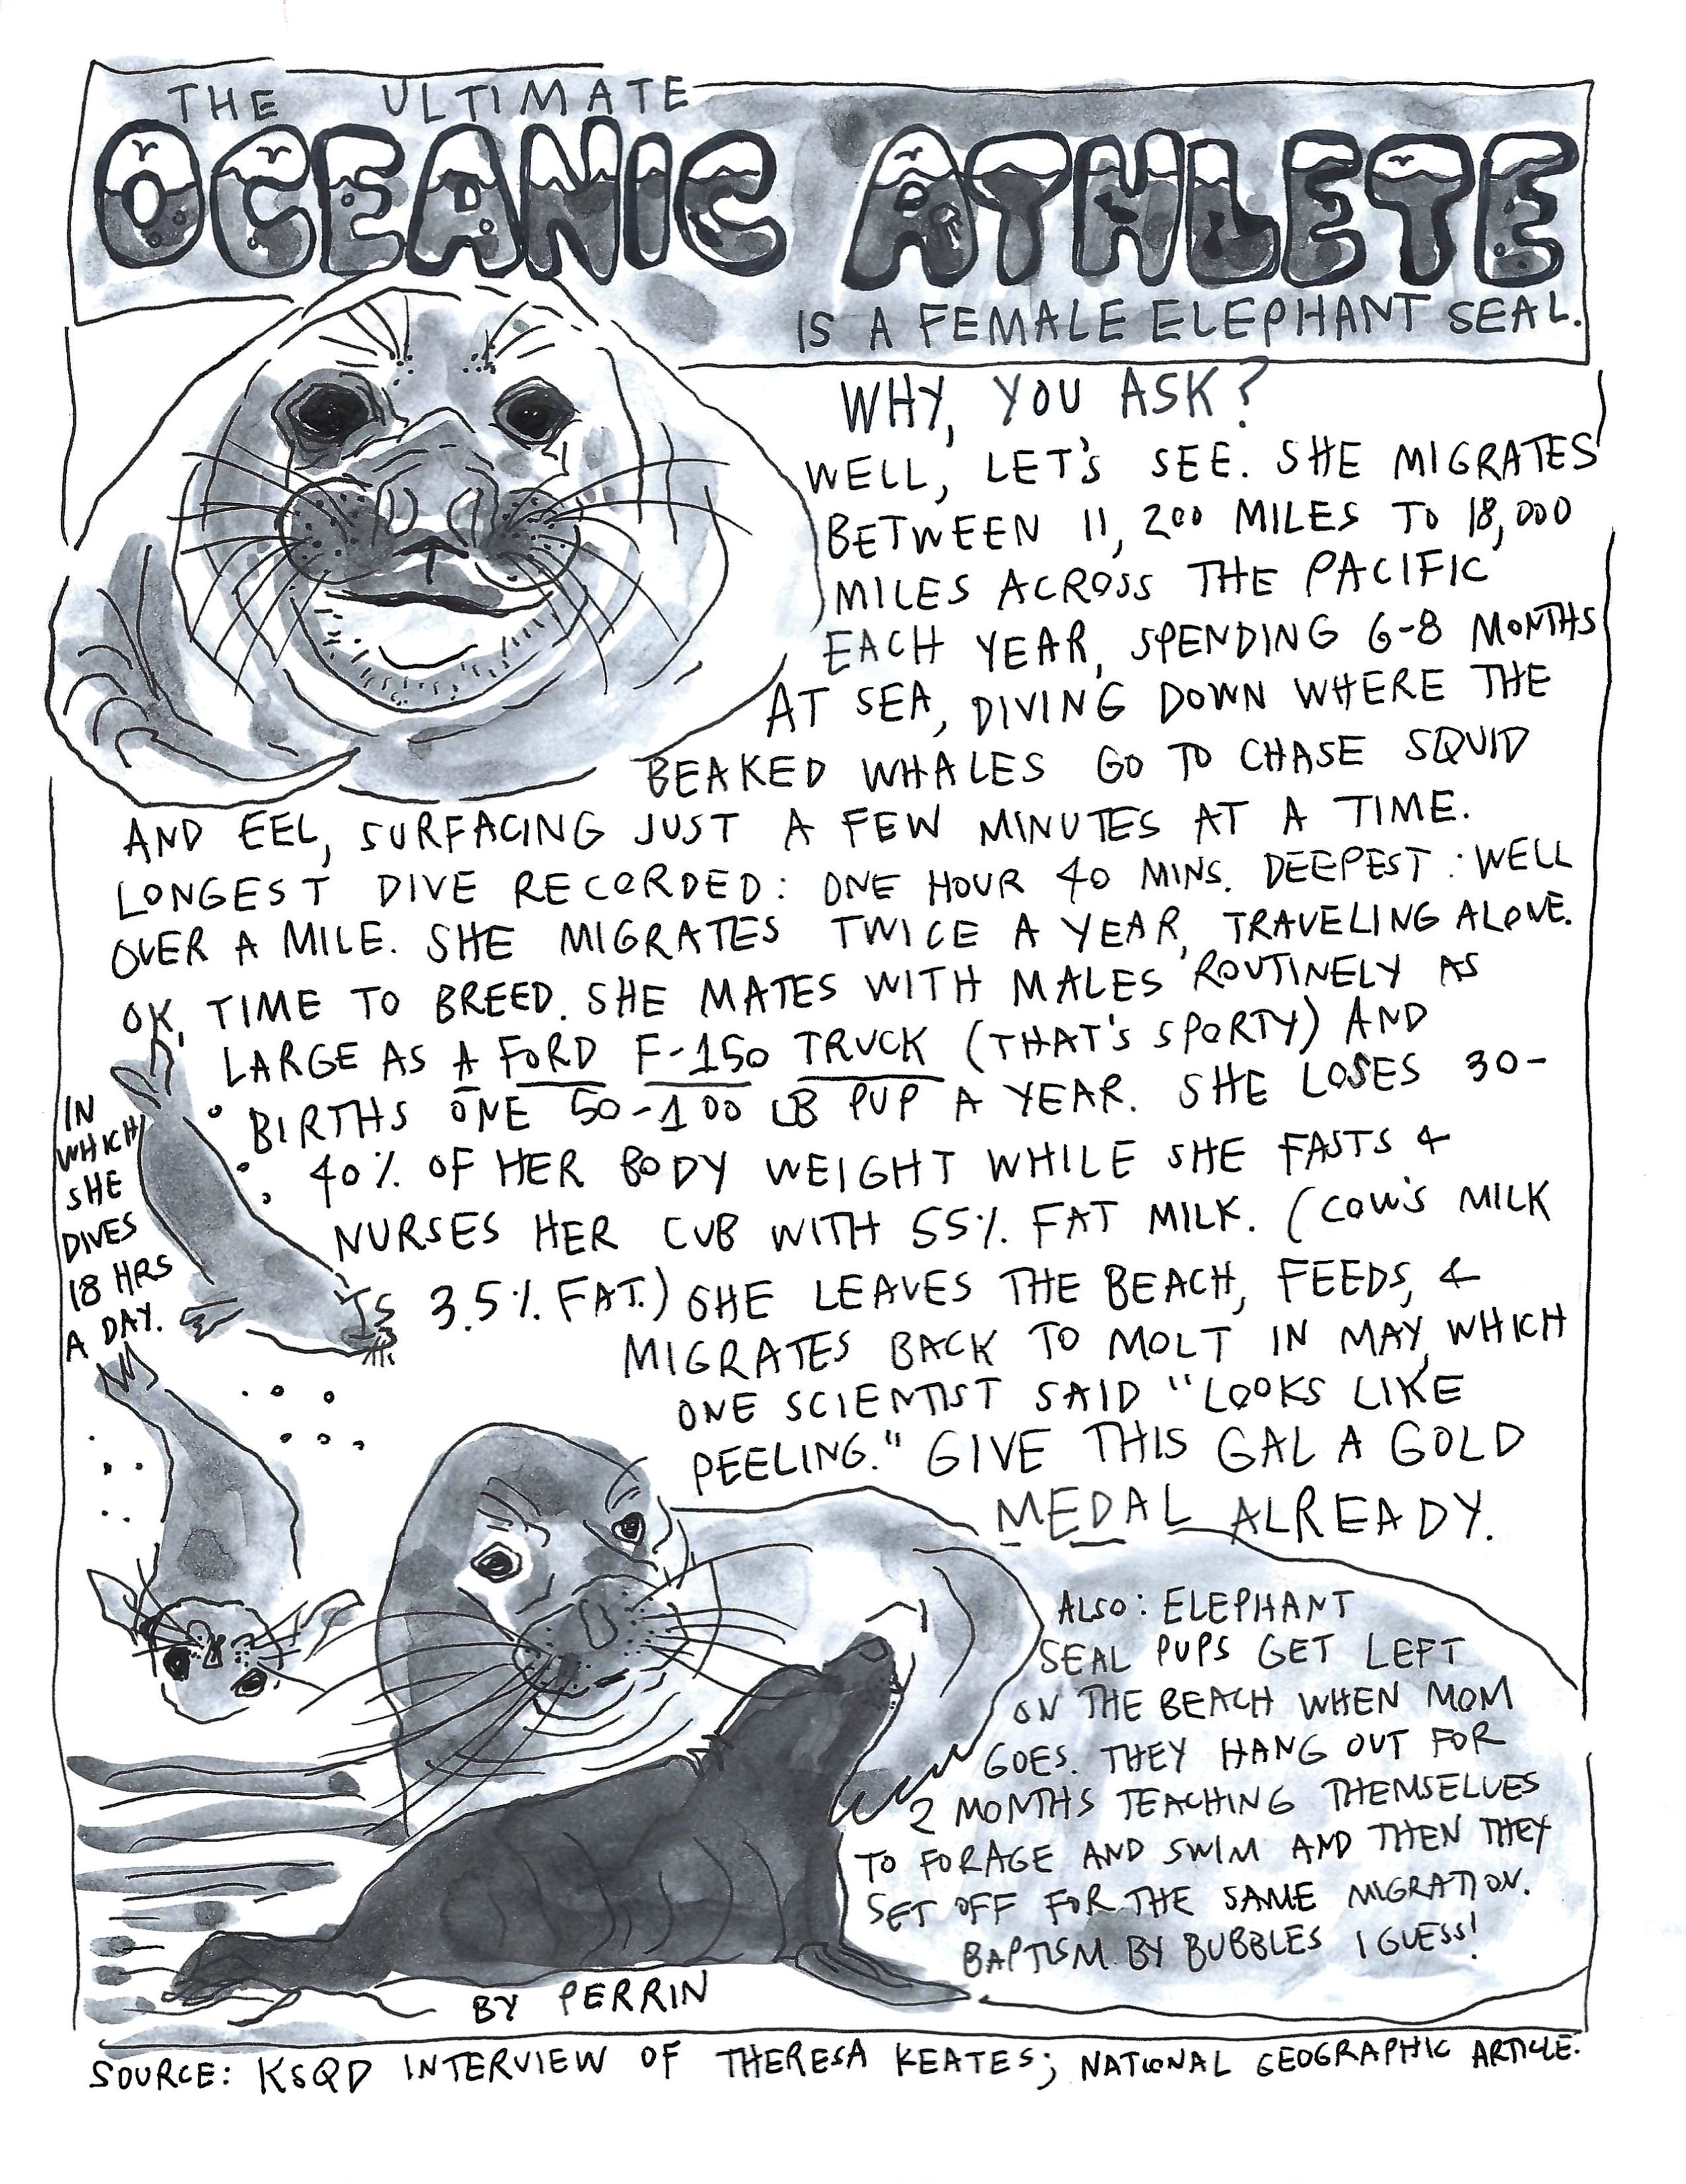 THE ULTIMATE
OCEANIC ATHLETE
IS A FEMALE ELEPHANT SEAL.
WHY, YOU ASK?
WELL, LET'S SEE. SHE MIGRATES
BETWEEN 11,200 MILES TO 18,000
MILES ACROSS THE PACIFIC
EACH YEAR, SPENDING 6-8 MONTHS
AT SEA, DIVING DOWN WHERE THE
BEAKED WHALES GO TO CHASE SQUID
AND EEL, SURFACING JUST A FEW MINUTES AT A TIME.
LONGEST DIVE RECORDED: ONE HOUR 40 MINS. DEEPEST: WELL
OVER A MILE. SHE MIGRATES TWICE A YEAR, TRAVELING ALONE.
OK, TIME TO BREED. SHE MATES WITH MALES ROUTINELY AS
LARGE AS A FORD F-150 TRUCK (THAT'S SPORTY) AND
BIRTHS ONE 50-100 LB PUP A YEAR. SHE LOSES 30-
40% OF HER BODY WEIGHT WHILE SHE FASTS &
NURSES HER CUB WITH 55% FAT MILK. (COW'S MILK
IS 3.5% FAT.) SHE LEAVES THE BEACH, FEEDS, &
MIGRATES BACK TO MOLT IN MAY, WHICH
ONE SCIENTIST SAID "LOOKS LIKE
PEELING." GIVE THIS GAL A GOLD
MEDAL ALREADY.
IN
WHICH
SHE
DIVES
18 HRS
A DAY.
ALSO: ELEPHANT
SEAL PUPS GET LEFT
ON THE BEACH WHEN MOM
GOES. THEY HANG OUT FOR
2 MONTHS TEACHING THEMSELVES
TO FORAGE AND SWIM AND THEN THEY
SET OFF FOR THE SAME MIGRATION.
BAPTISM BY BUBBLES I GUESS!
BY PERRIN
SOURCE: KSQD INTERVIEW OF THERESA KEATES; NATIONAL GEOGRAPHIC ARTICLE.